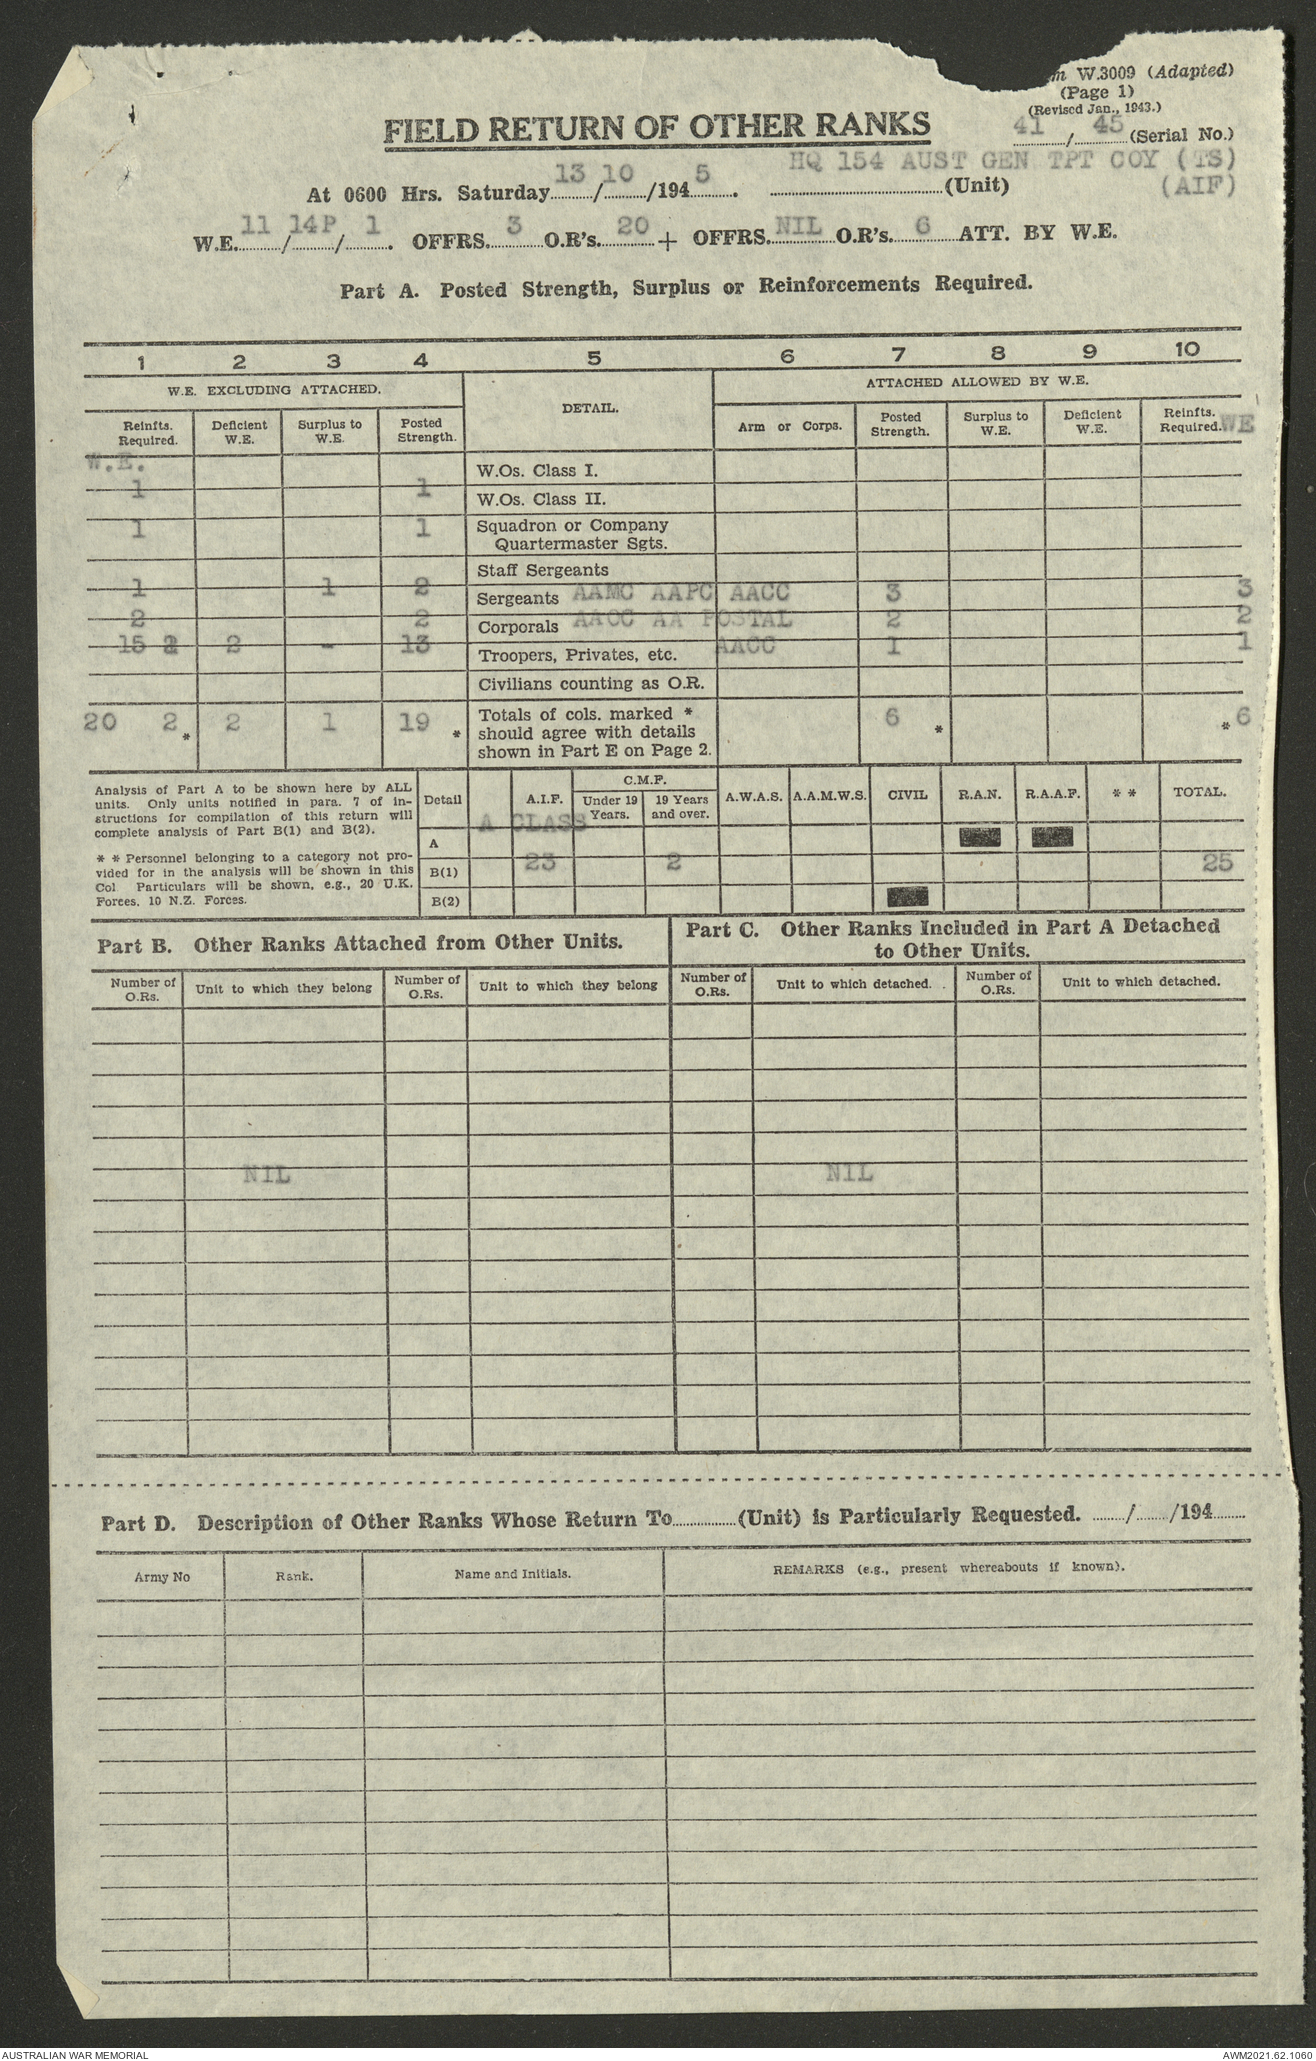 m W.3009 (Adapted)
(Page 1)
(Revised Jan., 1943.)
FIELD RETURN OF OTHER RANKS
41 / 45 (Serial No.)
HQ 154 AUST GEN TPT COY (TS)
At 0600 Hrs. Saturday 13 / 10 /194 5. (Unit) (AIF)
W.E. 11 / 14P / 1. OFFRS. 3 O.R's. 20 + OFFRS. NIL O.R's. 6 ATT. BY W.E.
Part A. Posted Strength, Surplus or Reinforcements Required.
1 2 3 4 5 6 7 8 9 10
W.E. EXCLUDING ATTACHED. DETAIL. ATTACHED ALLOWED BY W.E.
Reinfts. Required. Deficient W.E. Surplus to W.E. Posted Strength. Arm or Corps. Posted Strength. Surplus to W.E. Deficient W.E. Reinfts. Required. WE
W.E. W.Os. Class I.
1 1 W.Os. Class II.
1 1 Squadron or Company
Quartermaster Sgts.
Staff Sergeants
1 1 2 Sergeants AAMC AAPC AACC 3 3
2 2 Corporals AAOC AA POSTAL 2 2
15 2 2 - 13 Troopers, Privates, etc. AACC 1 1
Civilians counting as O.R.
20 2 * 2 1 19 * Totals of cols. marked * 6 * * 6
should agree with details
shown in Part E on Page 2.
Analysis of Part A to be shown here by ALL
units. Only units notified in para. 7 of in-
structions for compilation of this return will
complete analysis of Part B(1) and B(2).
* * Personnel belonging to a category not pro-
vided for in the analysis will be shown in this
Col Particulars will be shown, e.g., 20 U.K.
Forces, 10 N.Z. Forces.
Detail A.I.F. C.M.F. A.W.A.S. A.A.M.W.S. CIVIL R.A.N. R.A.A.F. * * TOTAL.
Under 19 Years. 19 Years and over.
A CLASS
A
B(1) 23 2 25
B(2)
Part B. Other Ranks Attached from Other Units.
Part C. Other Ranks Included in Part A Detached
to Other Units.
Number of O.Rs. Unit to which they belong Number of O.Rs. Unit to which they belong Number of O.Rs. Unit to which detached. Number of O.Rs. Unit to which detached.
NIL NIL
Part D. Description of Other Ranks Whose Return To (Unit) is Particularly Requested. / /194
Army No Rank. Name and Initials. REMARKS (e.g., present whereabouts if known).
AUSTRALIAN WAR MEMORIAL AWM2021.62.1060